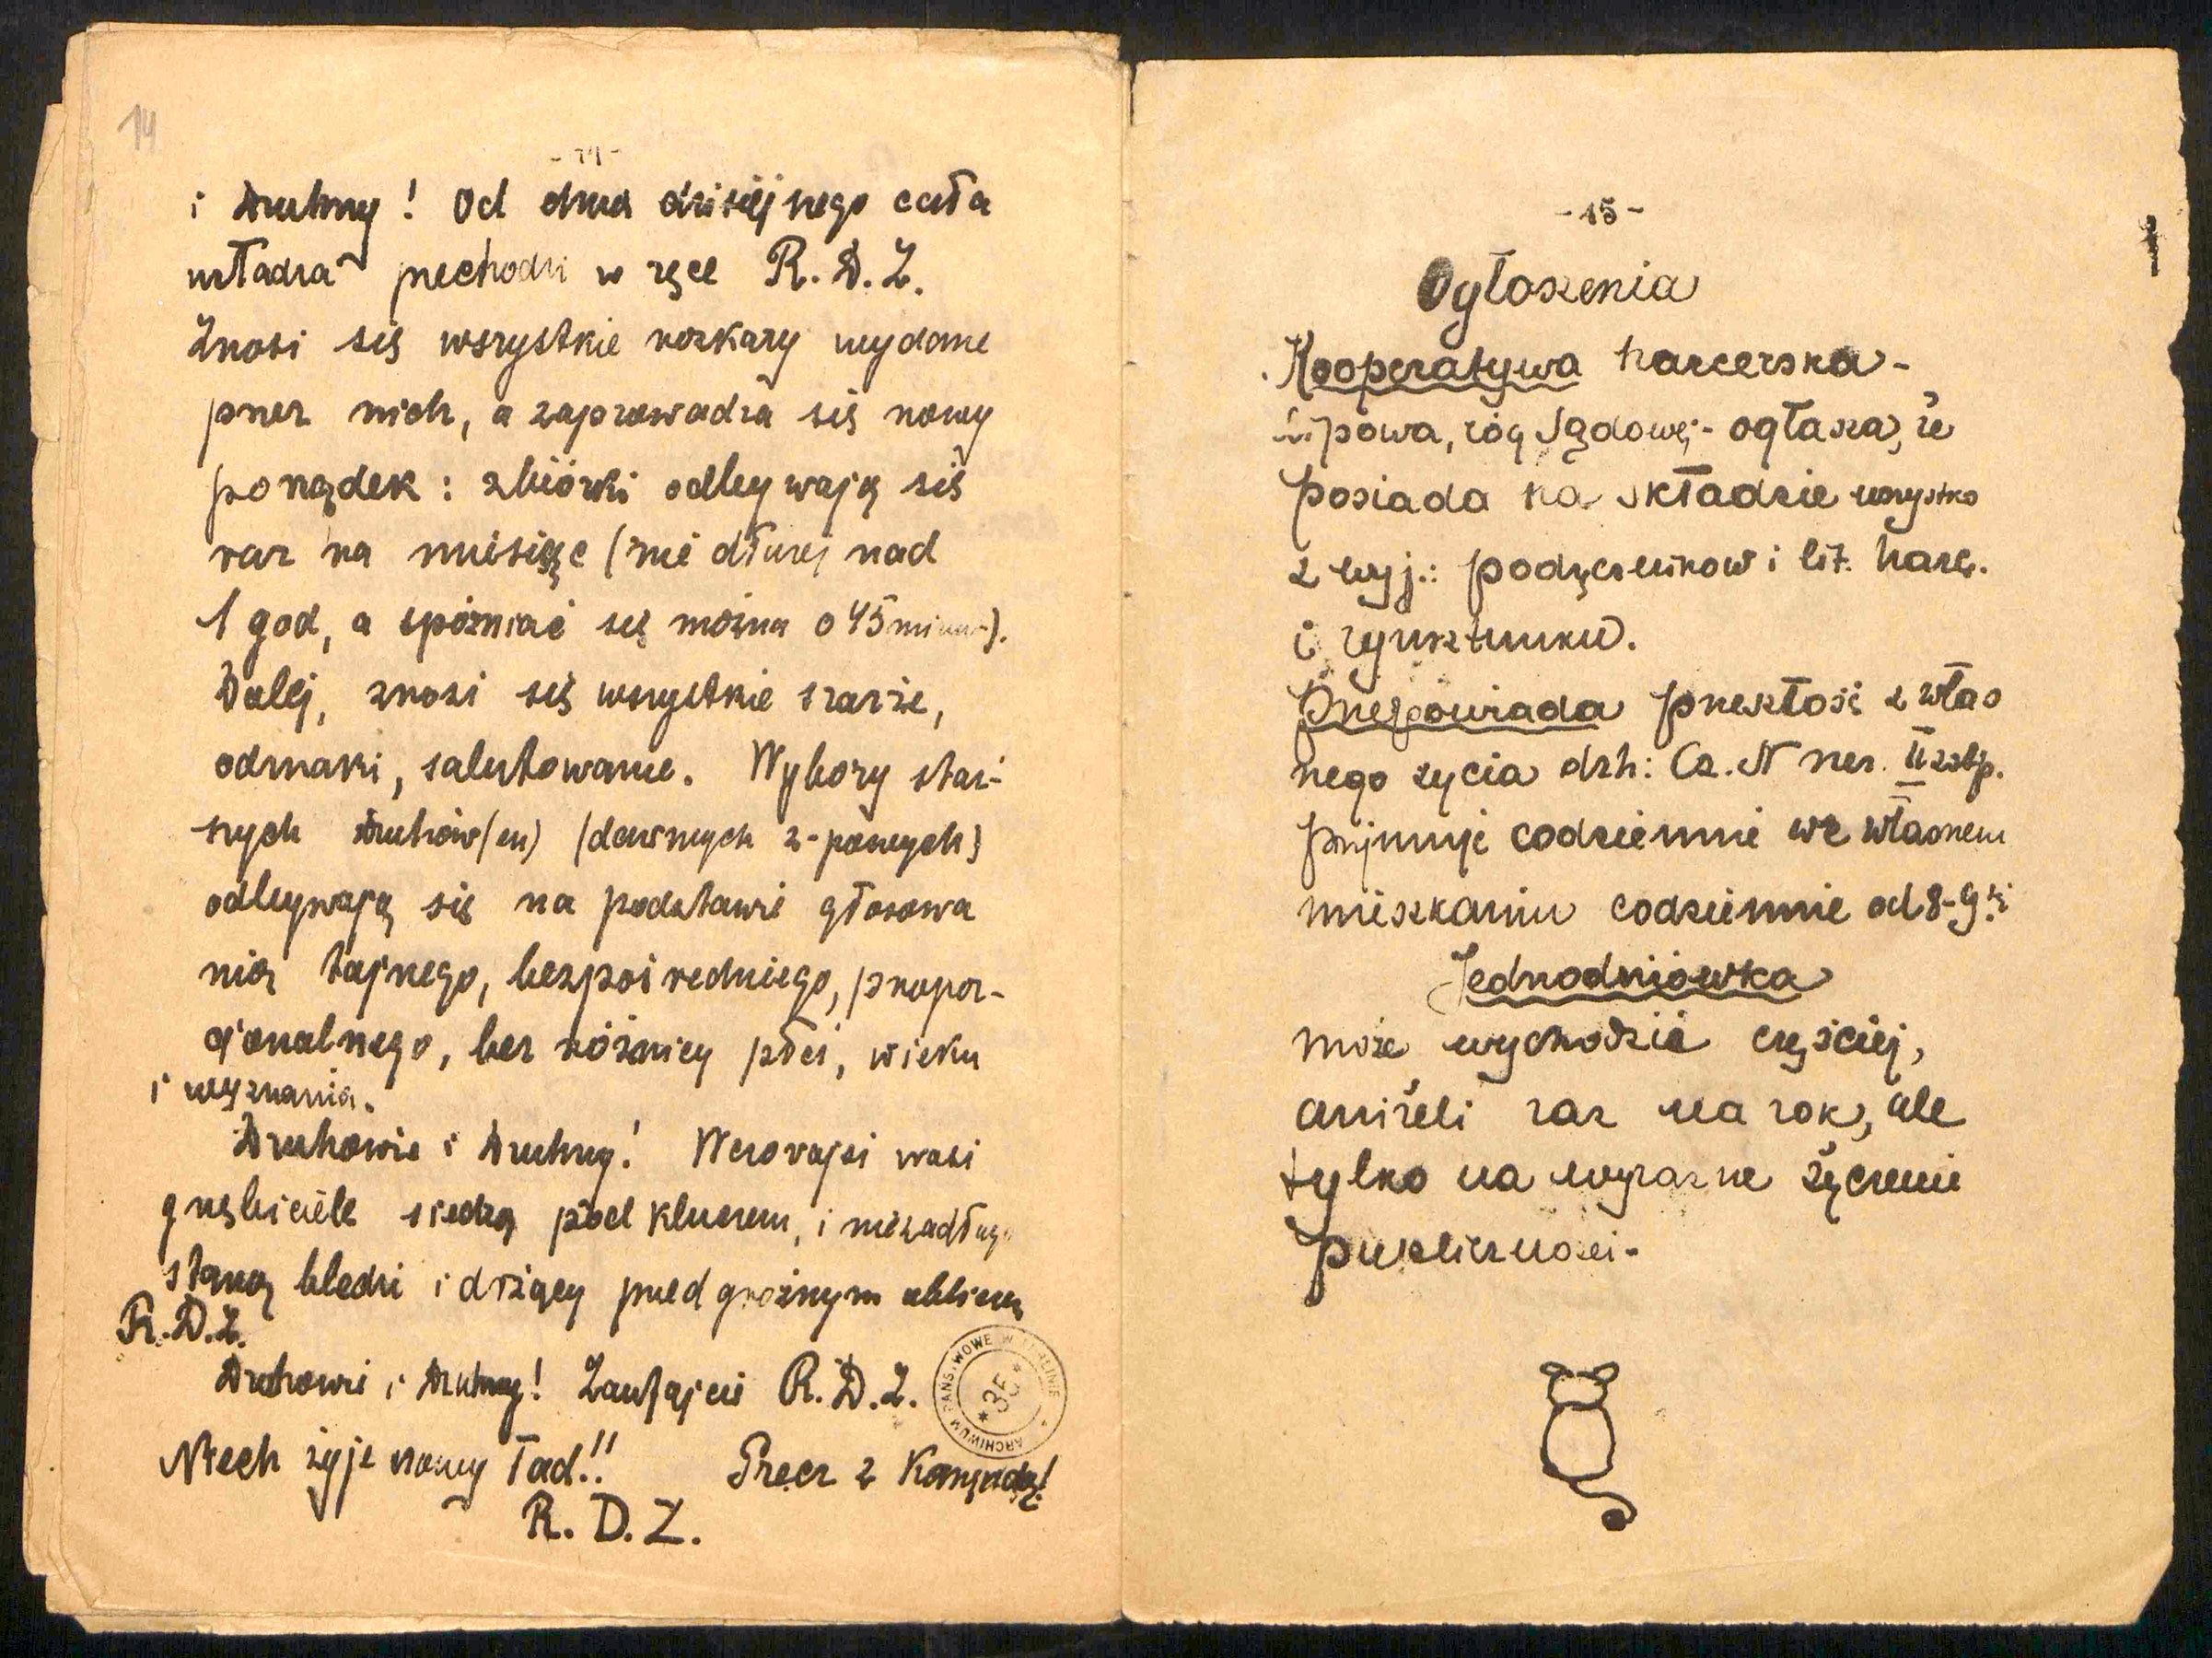 14
- 14 -
i Druhny! Od dnia dzisiejnego cała
władza przechodzi w ręce R.D.Z.
Znosi się wszystkie rozkazy wydane
przez nich, a zaprowadza się nowy
porządek: zbiórki odbywają się
raz na miesiąc (nie dłużej nad
1 god, a spóźniać się można o 45 minut).
Dalej, znosi się wszystkie szarże,
odznaki, salutowanie. Wybory star-
szych druhów(en) (dawnych z-powych)
odbywają się na podstawie głosowa
nia tajnego, bezpośredniego, propor-
cjonalnego, bez różnicy płci, wieku
i wyznania.
Druhowie i Druhny! Wczorajsi wasi
gnębiciele siedzą pod kluczem, i niezadługo
staną bledzi i drżący przed groźnym obliczem
R.D.Z.
Druhowie i Druhny! Zaufajcie R.D.Z.
Niech żyje nowy ład!! Precz z Komendą!
R.D.Z.
ARCHIWUM PAŃSTWOWE W LUBLINIE
* 35 *
- 15 -
Ogłoszenia
Kooperatywa harcerska -
Lipowa, róg Sądowej - ogłasza, że
posiada na składzie wszystko
z wyj.: podręczników i lit. harc.
i rynsztunku.
Przepowiada przeszłość z włas
nego życia dzh: Cz. N II zstp.
przyjmuje codziennie we własnem
mieszkaniu codziennie od 8-9ej
Jednodniówka
może wychodzić częściej,
aniżeli raz na rok, ale
tylko na wyraźne życzenie
publiczności-